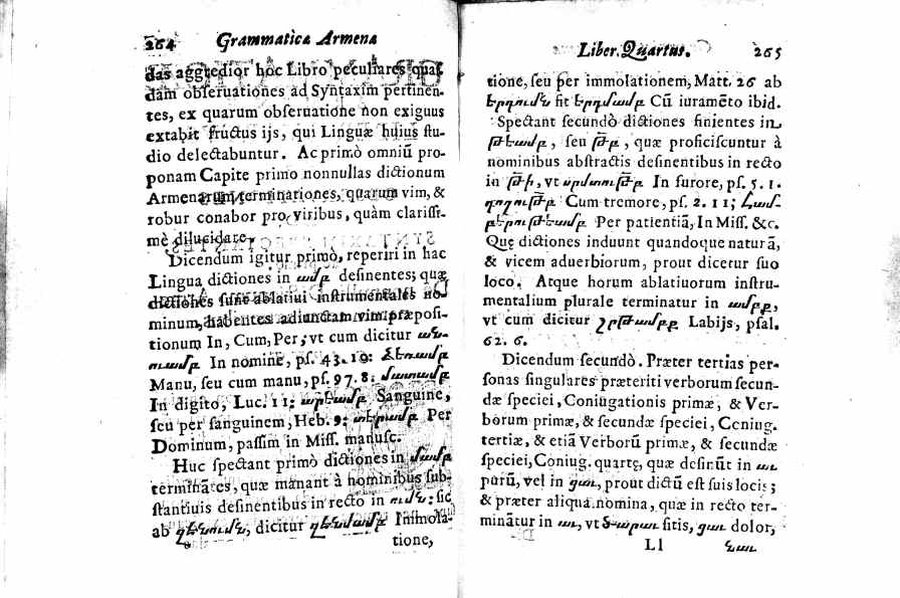 264 Grammatica Armena
das aggredior hoc Libro peculiares quas
dam obſeruationes ad Syntaxim pertinen-
tes, ex quarum obſeruatione non exiguus
extabit fructus ijs, qui Linguæ huius ſtu
dio delectabuntur. Ac primò omniũ pro-
ponam Capite primo nonnullas dictionum
Armenarum terminationes, quarum vim, &
robur conabor pro viribus, quàm clariſſi-
mè dilucidare,
Dicendum igitur primò, reperiri in hac
Lingua dictiones in ամբ deſinentes; quæ
dictiones ſunt ablatiui inſtrumentales no-
minum, habentes adiunctam vim præpoſi-
tionum In, Cum, Per, vt cum dicitur ան-
ուամբ In nomine, pſ. 43. 10: Ձեռամբ
Manu, ſeu cum manu, pſ. 97. 8. մատամբ
In digito, Luc. 11: արեամբ Sanguine,
ſeu per ſanguinem, Heb. 9: տերամբ Per
Dominum, paſſim in Miſſ. manuſc.
Huc ſpectant primò dictiones in մամբ
terminãtes, quæ manant à nominibus ſub-
ſtantiuis deſinentibus in recto in ումն: ſic
ab զենումն, dicitur զենմամբ Immola-
tione,
Liber Quartus. 265
tione, ſeu per immolationem, Matt. 26 ab
երդումն fit երդմամբ Cũ iuramẽto ibid.
Spectant ſecundò dictiones finientes in
թեամբ, ſeu թ̃բ, quæ proficiſcuntur à
nominibus abſtractis deſinentibus in recto
in թ̃ի, vt սրտմու̃թբ In furore, pſ. 5. 1.
դողութ̃բ Cum tremore, pſ. 2. 11; Համ-
բերութեամբ Per patientiã, In Miſſ. &c.
Quę dictiones induunt quandoque naturã,
& vicem aduerbiorum, prout dicetur ſuo
loco. Atque horum ablatiuorum inſtru-
mentalium plurale terminatur in ամբք,
vt cum dicitur շրթամբք Labijs, pſal.
62. 6.
Dicendum ſecundò. Præter tertias per-
ſonas ſingulares præteriti verborum ſecun-
dæ ſpeciei, Coniugationis primæ, & Ver-
borum primæ, & ſecundæ ſpeciei, Coniug.
tertiæ, & etiã Verborũ primæ, & ſecundæ
ſpeciei, Coniug. quartę, quæ deſinũt in աւ
purũ, vel in ցաւ, prout dictũ eſt ſuis locis;
& præter aliqua nomina, quæ in recto ter-
minãtur in աւ, vt Ծարաւ ſitis, ցաւ dolor,
Ll նաւ